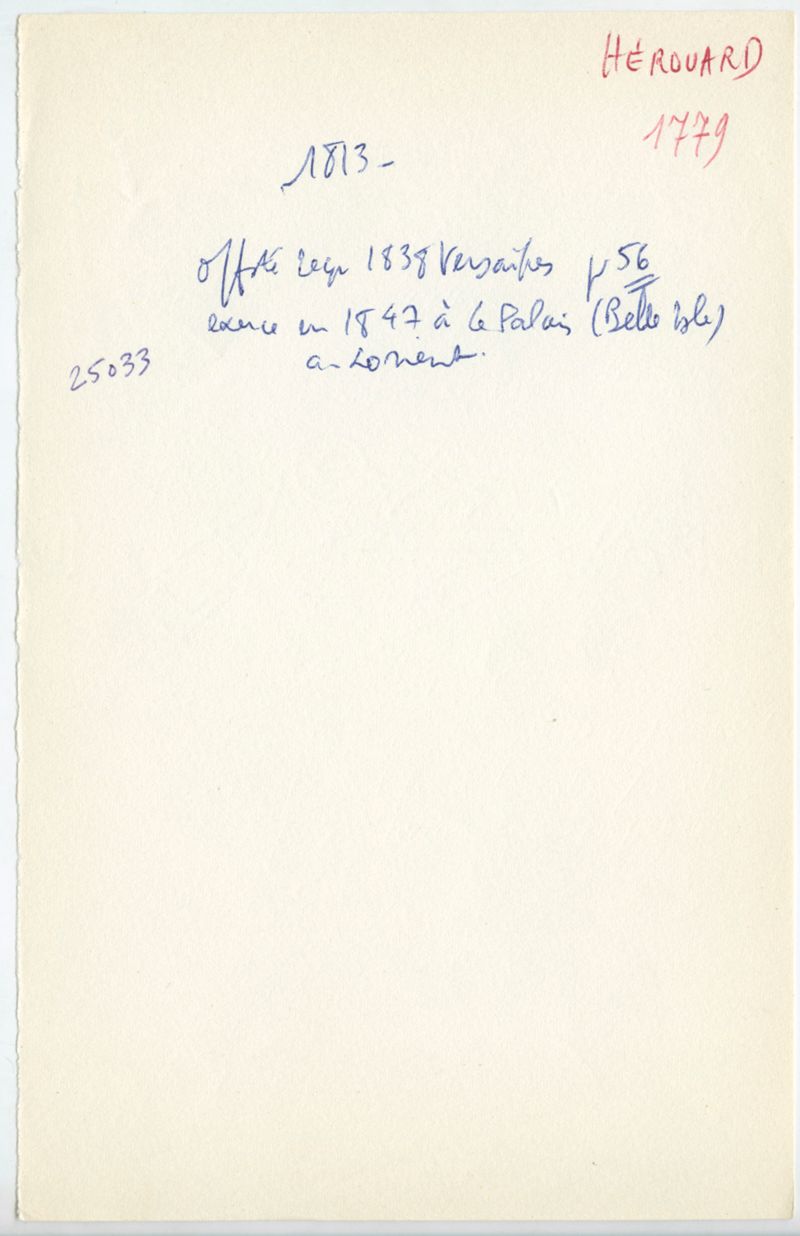 HÉROUARD
1779
1813 -
off té reçu 1838 Versailles p 56
exerce en 1847 à Le Palais (Belle Isle)
25033
a - Lorient.